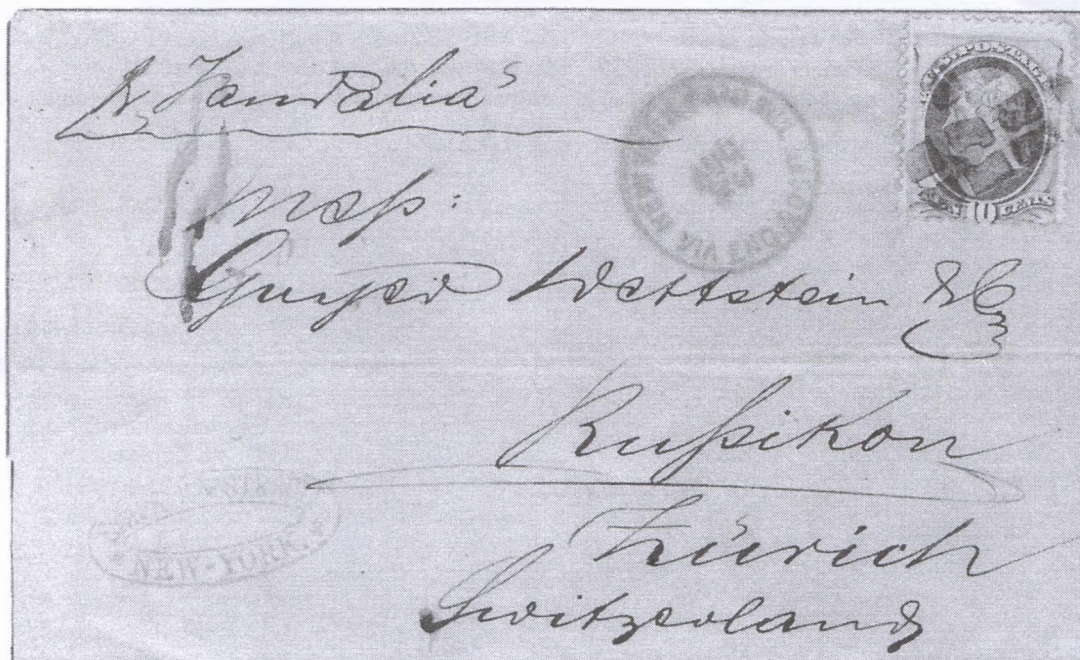 pr Vandalia
U.S. POSTAGE
TEN 10 CENTS
Mess:
Guyer Wettstein & Co
Rußikon
Zürich
Switzerland
NEW-YORK.